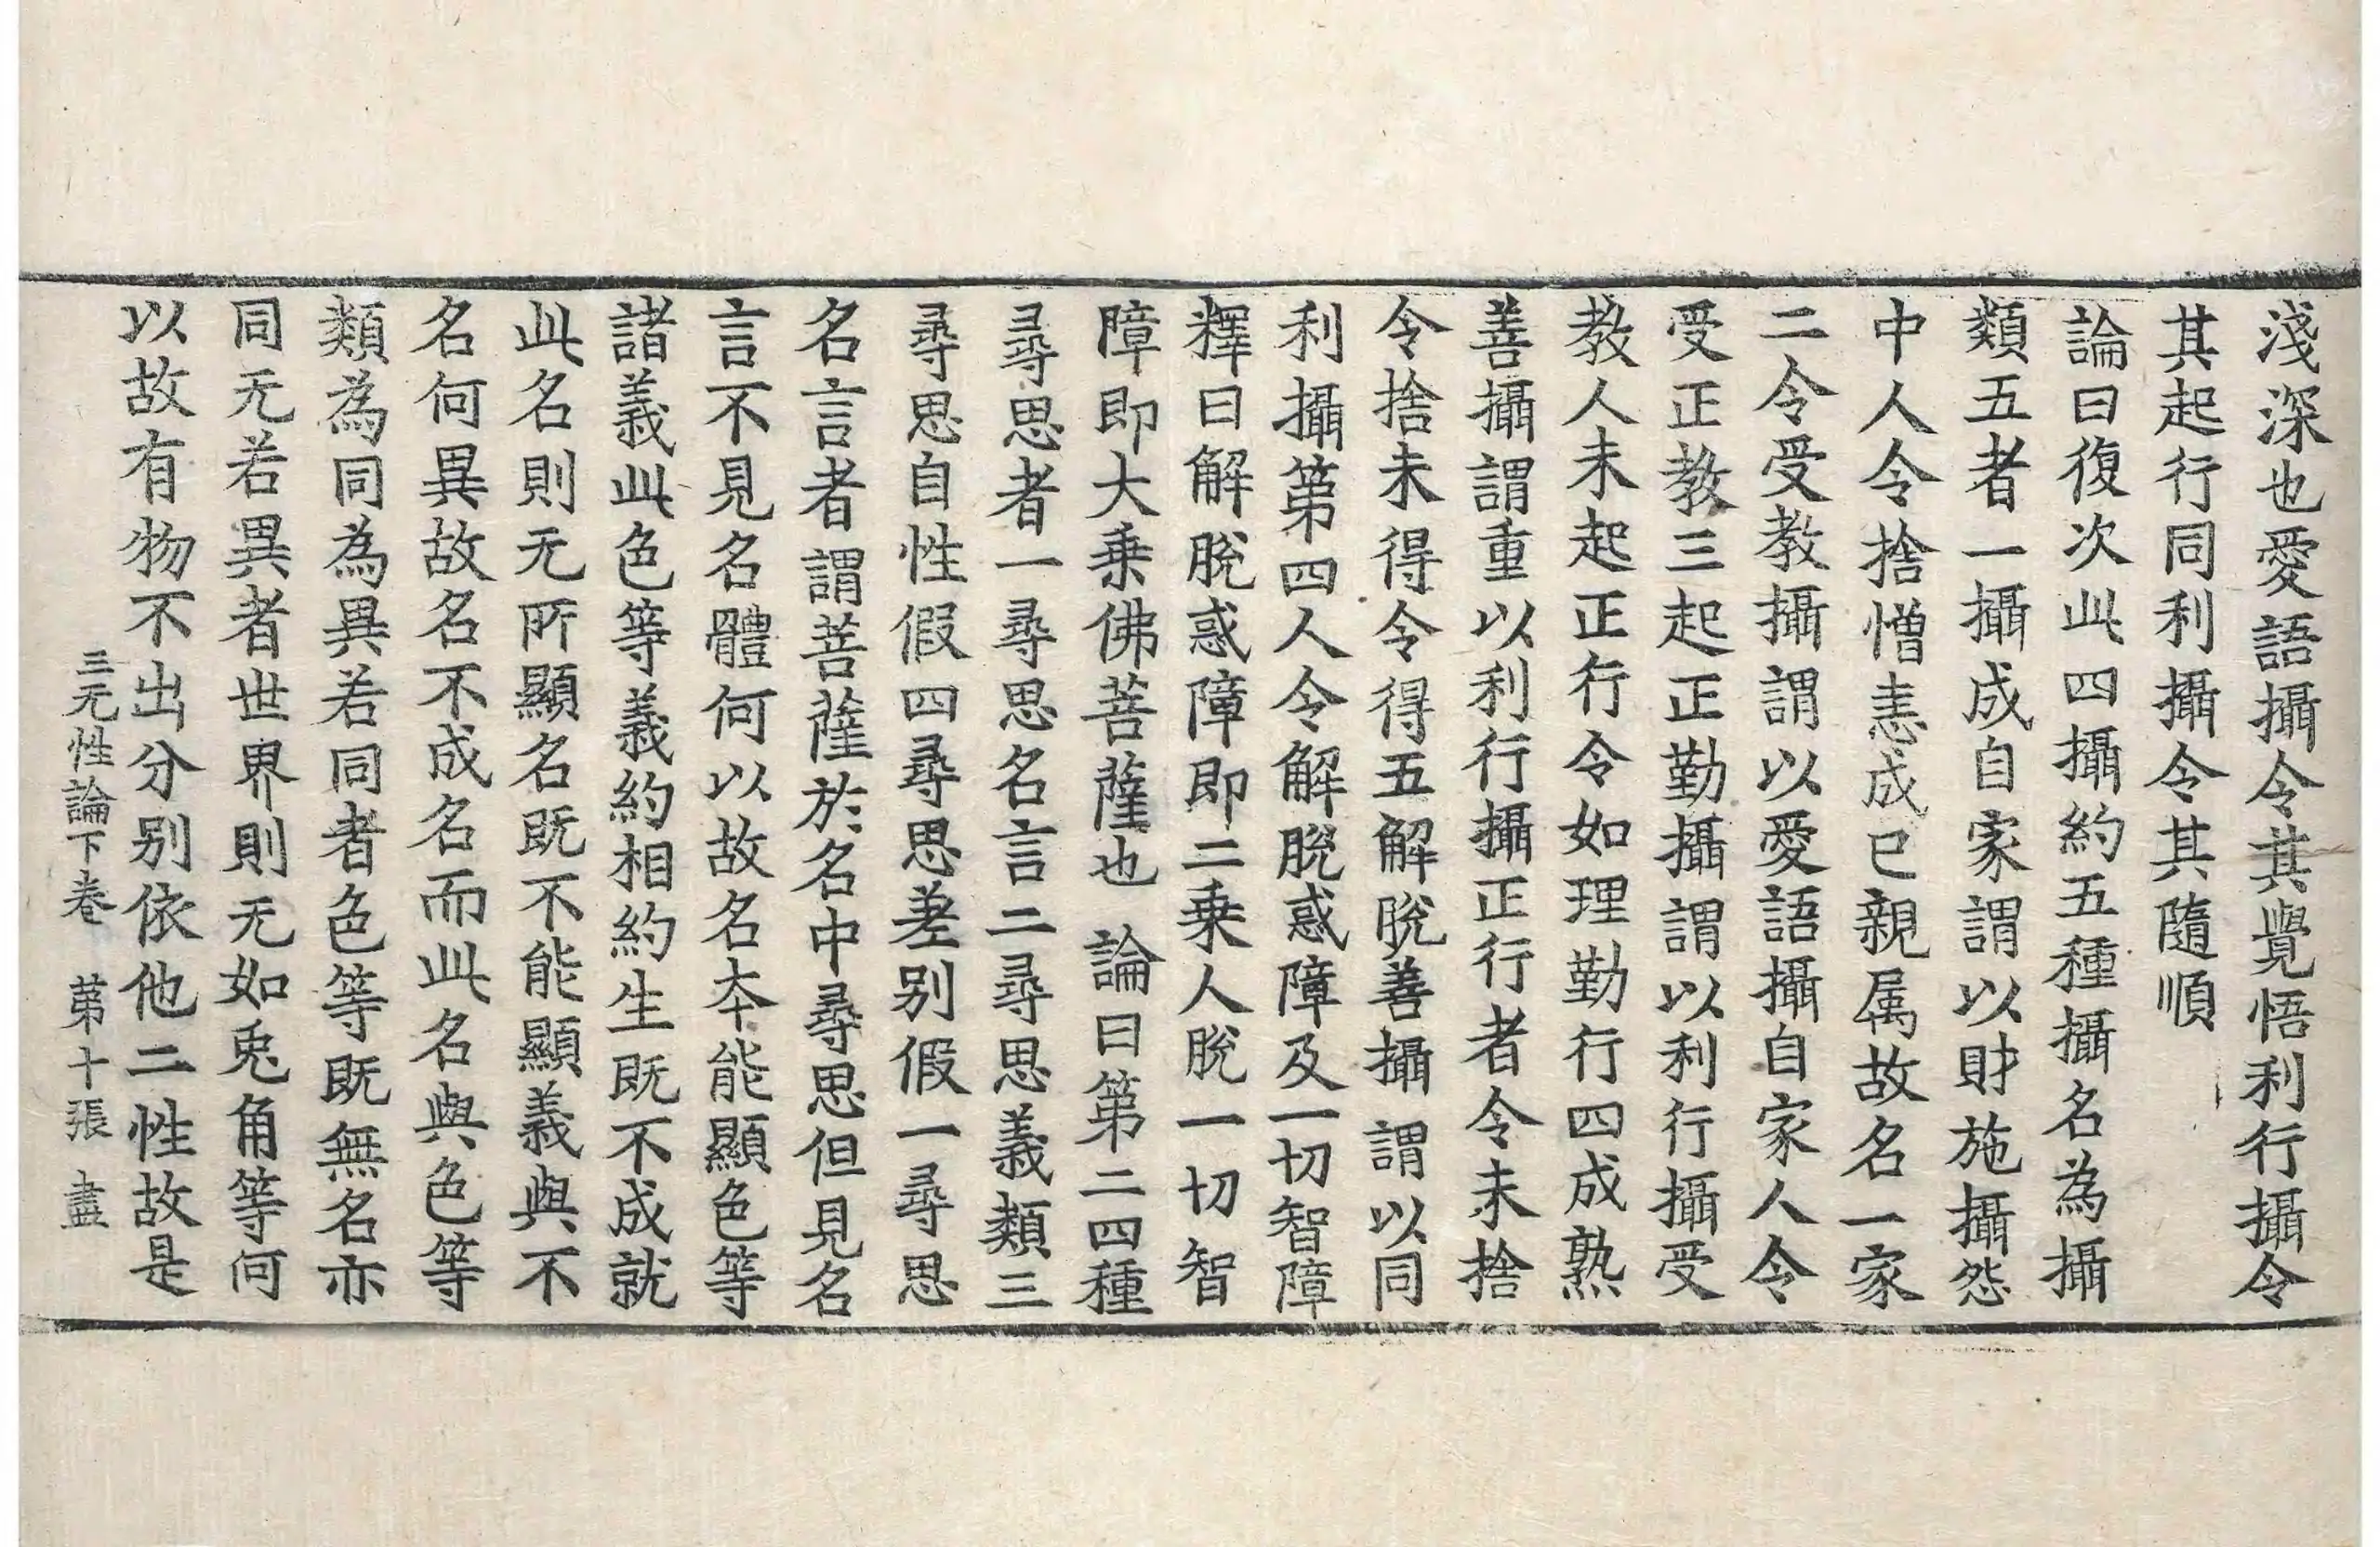 淺深也愛語攝令其覺悟利行攝令
其起行同利攝令其隨順
論曰復次此四攝約五種攝名為攝
類五者一攝成自家謂以財施攝怨
中人令捨憎恚成已親属故名一家
二令受教攝謂以愛語攝自家人令
受正教三起正勤攝謂以利行攝受
教人未起正行令如理勤行四成熟
善攝謂重以利行攝正行者令未捨
令捨未得令得五解脫善攝謂以同
利攝第四人令解脫惑障及一切智障
釋曰解脫惑障即二乗人脫一切智
障即大乗佛菩薩也 論曰第二四種
尋思者一尋思名言二尋思義類三
尋思自性假四尋思差别假一尋思
名言者謂菩薩於名中尋思但見名
言不見名體何以故名夲能顯色等
諸義此色等義約相約生既不成就
此名則无所顯名既不能顯義與不
名何異故名不成名而此名與色等
類為同為異若同者色等既無名亦
同无若異者世界則无如兎角等何
以故有物不出分别依他二性故是
三无性論下卷 第十張 盡